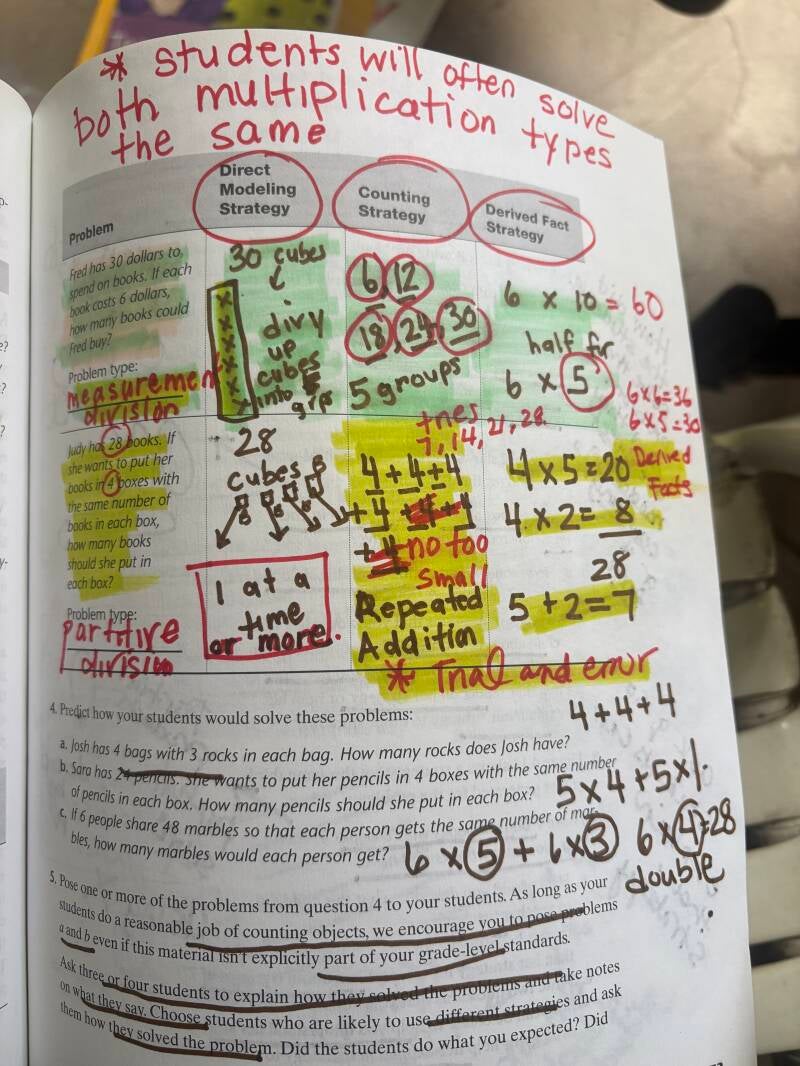 * students will often solve
both multiplication types
the same
Problem
Direct
Modeling
Strategy
Counting
Strategy
Derived Fact
Strategy
Fred has 30 dollars to
spend on books. If each
book costs 6 dollars,
how many books could
Fred buy?
Problem type:
measurement
division
30 cubes
divy
up
cubes
into
grp
6, 12
18, 24, 30
5 groups
6 x 10 = 60
half for
6 x 5
6x6=36
6x5=30
Judy has 28 books. If
she wants to put her
books in 4 boxes with
the same number of
books in each box,
how many books
should she put in
each box?
Problem type:
partitive
division
28
cubes
1 at a
time
or more.
7, 14, 21, 28
4+4+4
+4 +4+4
+4 no too
small
Repeated
Addition
* Trial and error
4x5=20
4x2= 8
28
5+2=7
Derived
Facts
4. Predict how your students would solve these problems:
4+4+4
a. Josh has 4 bags with 3 rocks in each bag. How many rocks does Josh have?
b. Sara has 24 pencils. She wants to put her pencils in 4 boxes with the same number
of pencils in each box. How many pencils should she put in each box?
5x4+5x1.
c. If 6 people share 48 marbles so that each person gets the same number of mar-
bles, how many marbles would each person get?
6 x 5 + 6x3
6x4=28
double
5. Pose one or more of the problems from question 4 to your students. As long as your
students do a reasonable job of counting objects, we encourage you to pose problems
a and b even if this material isn't explicitly part of your grade-level standards.
Ask three or four students to explain how they solved the problems and take notes
on what they say. Choose students who are likely to use different strategies and ask
them how they solved the problem. Did the students do what you expected? Did